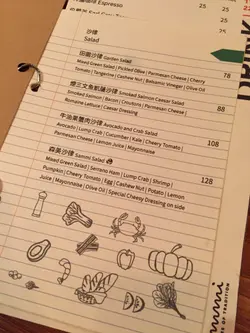 Espresso 25 25
沙律
Salad
田園沙律 Garden Salad 78
Mixed Green Salad | Pickled Olive | Parmesan Cheese | Cherry
Tomato | Tangerine | Cashew Nut | Balsamic Vinegar | Olive Oil
煙三文魚凱撒沙律 Smoked Salmon Caesar Salad 88
Smoked Salmon | Bacon | Croutons | Parmesan Cheese |
Romaine Lettuce | Caesar Dressing
牛油果蟹肉沙律 Avocado and Crab Salad 108
Avocado | Lump Crab | Cucumber | Kale | Cherry Tomato |
Parmesan Cheese | Lemon Juice | Mayonnaise
森美沙律 Sammi Salad 128
Mixed Green Salad | Serrano Ham | Lump Crab | Shrimp |
Pumpkin | Cheery Tomato | Egg | Cashew Nut | Potato | Lemon
Juice | Mayonnaise | Olive Oil | Special Cheesy Dressing on side
OF TRADITION